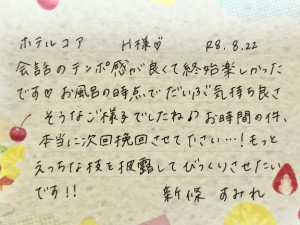 ホテルコア H様♡ R8.8.22
会話のテンポ感が良くて終始楽しかった
です♡お風呂の時点でだいぶ気持ち良さ
そうなご様子でしたね♪お時間の件、
本当に次回挽回させてください…!もっと
えっちな技を披露してびっくりさせたい
です!! 新條 すみれ